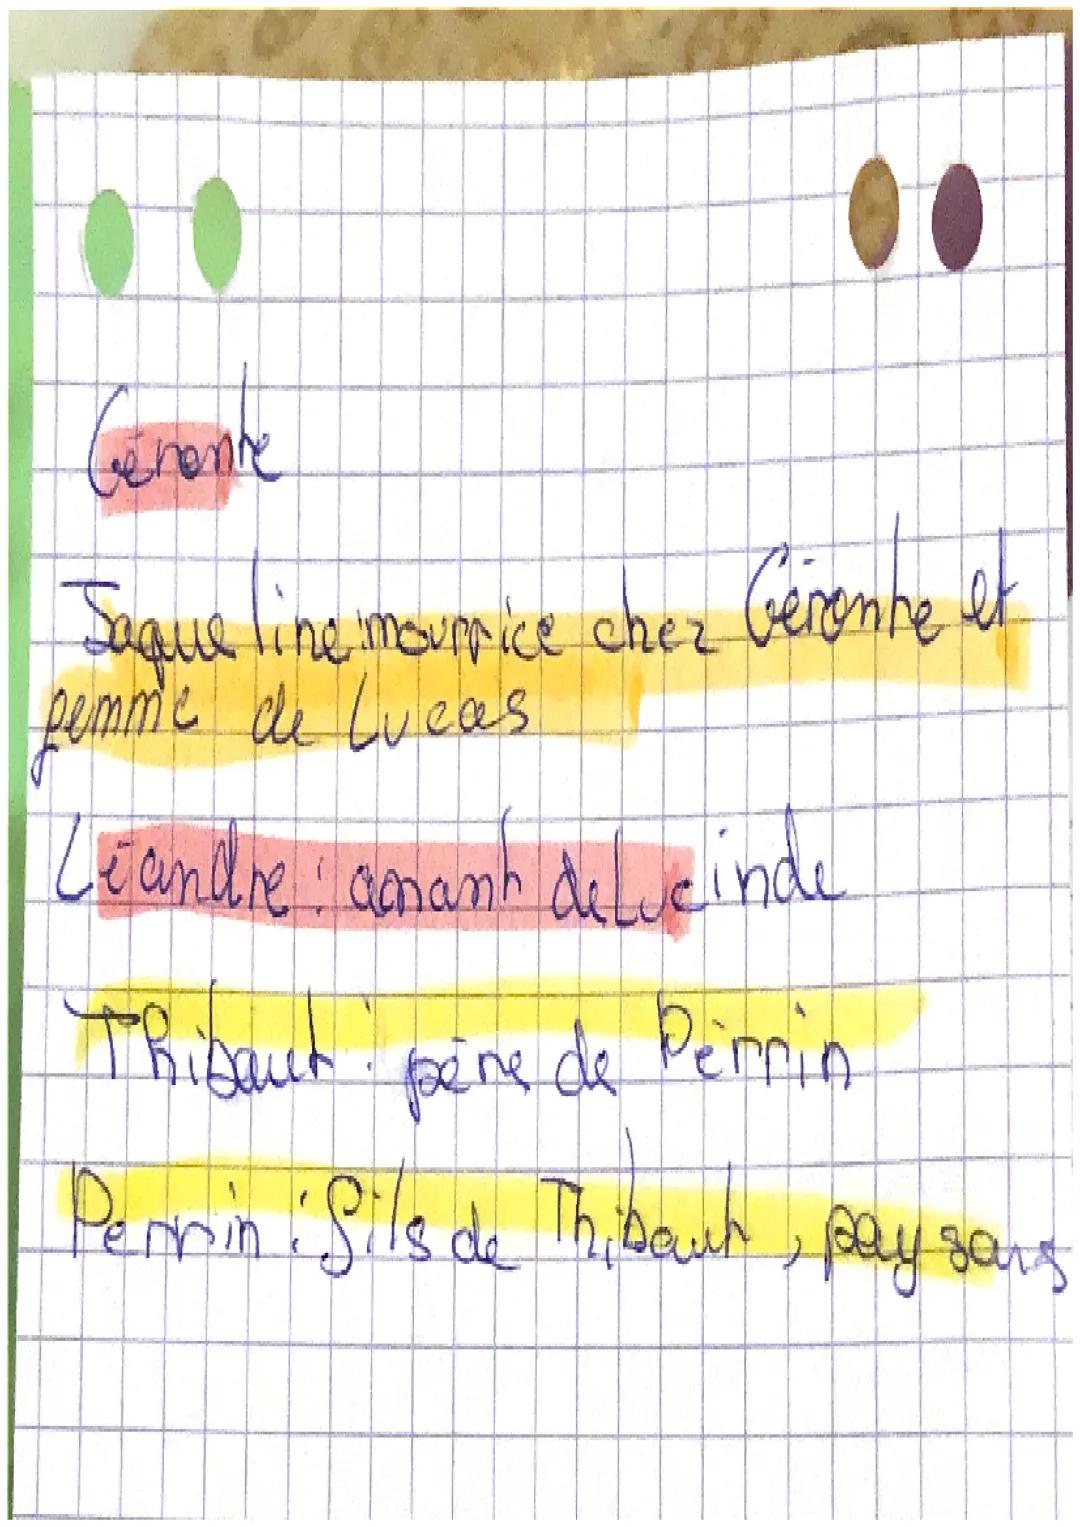 Géronte
Jaqueline : mourrice chez Géronte et
femme de Lucas
Léandre : amant de Lucinde
Thibaut : père de Perrin
Perrin : fils de Thibaut , paysans